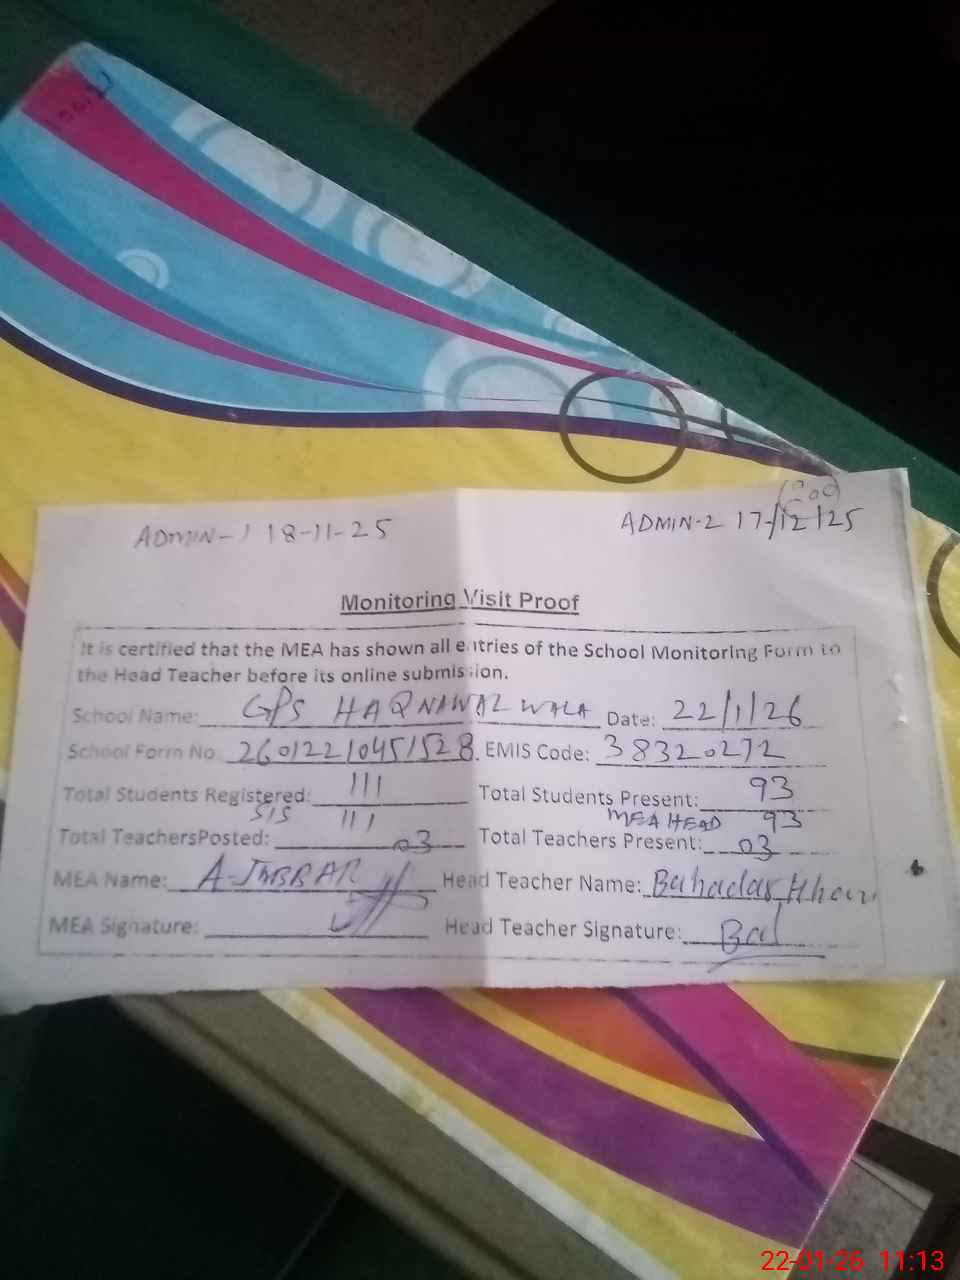 ADMIN-1 18-11-25
ADMIN-2 17/12/25
Monitoring Visit Proof
It is certified that the MEA has shown all entries of the School Monitoring Form to
the Head Teacher before its online submission.
School Name: GPS HAQ NAWAZ WALA Date: 22/1/26
School Form No 26012210451528. EMIS Code: 38320272
Total Students Registered: 111 Total Students Present: 93
SIS 111 MEA HEAD 93
Total TeachersPosted: 03 Total Teachers Present: 03
MEA Name: A-JABBAR Head Teacher Name: Bahadar Khan
MEA Signature: Head Teacher Signature: Bal
22-01-26 11:13